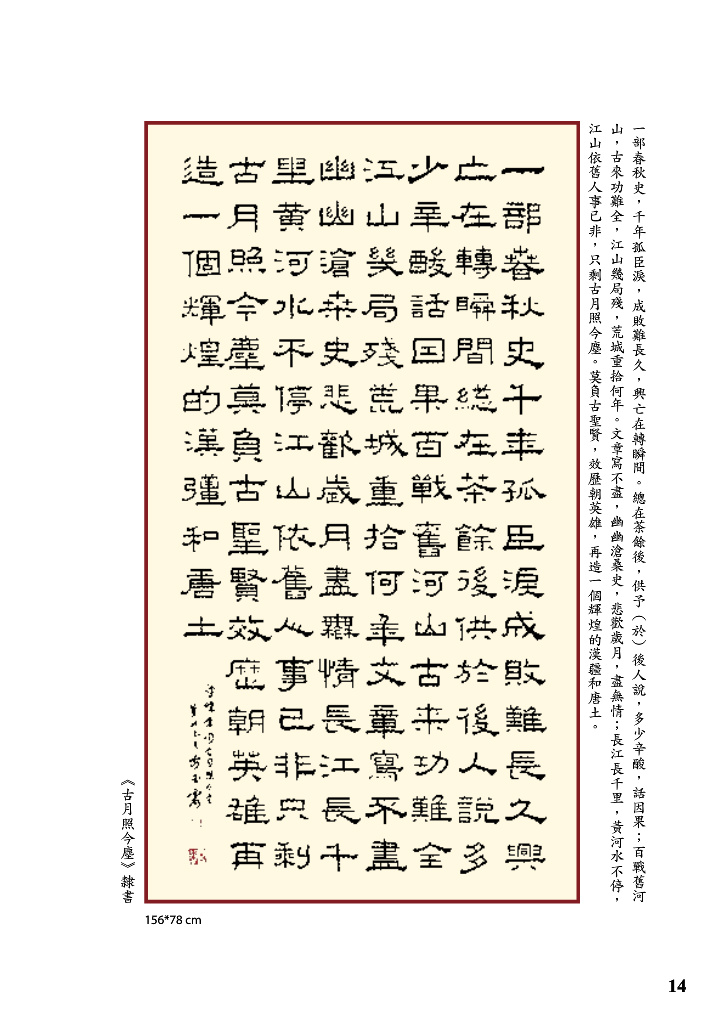 一部春秋史，千年孤臣淚，成敗難長久，興亡在轉瞬間。總在茶餘後，供予（於）後人說，多少辛酸，話因果；百戰舊河
山，古來功難全，江山幾局殘，荒城重拾何年。文章寫不盡，幽幽滄桑史，悲歡歲月，盡無情；長江長千里，黃河水不停，
江山依舊人事已非，只剩古月照今塵。莫負古聖賢，效歷朝英雄，再造一個輝煌的漢疆和唐土。
一部春秋史千年孤臣淚成敗難長久興
亡在轉瞬間總在茶餘後供於後人說多
少辛酸話因果百戰舊河山古来功難全
江山幾局殘荒城重拾何年文章寫不盡
幽幽滄桑史悲歡歲月盡無情長江長千
里黃河水不停江山依舊人事已非只剩
古月照今塵莫負古聖賢效歷朝英雄再
造一個輝煌的漢彊和唐土
《古月照今塵》隸書
156*78 cm
14